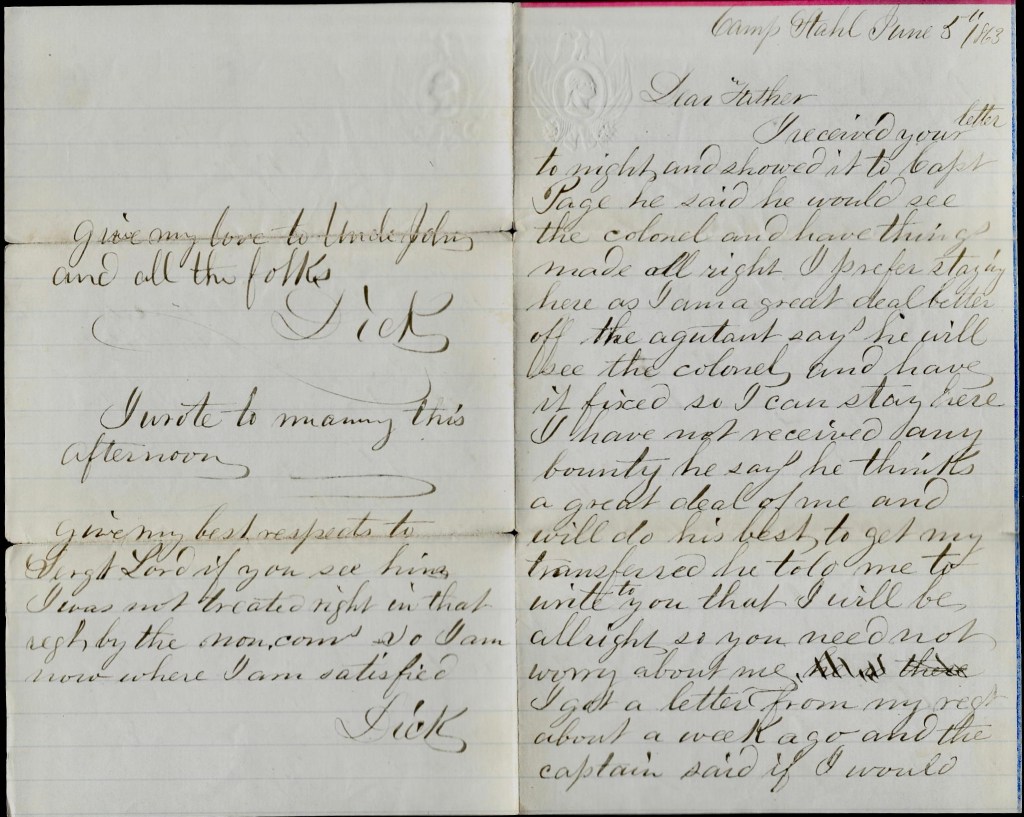 Camp Stahl June 5" 1863
Dear Father
I received your letter
to night and showed it to Capt
Page he said he would see
the colonel and have things
made all right I prefer staying
here as I am a great deal better
off the agutant says he will
see the colonel and have
it fixed so I can stay here
I have not received any
bounty he says he thinks
a great deal of me and
will do his best to get my
transferred he told me to
write to you that I will be
allright so you need not
worry about me there
I got a letter from my regt
about a week ago and the
captain said if I would
Give my love to Uncle John
and all the folks
Dick
I wrote to mammy this
afternoon
Give my best respects to
Sergt Lord if you see him
I was not treated right in that
regt by the non,coms so I am
now where I am satisfied
Dick